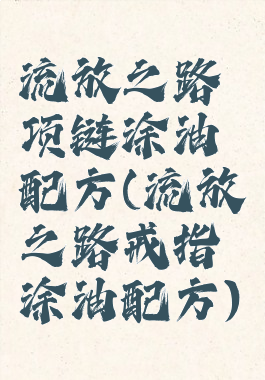 流放之路
项链涂油
配方(流放
之路戒指
涂油配方)